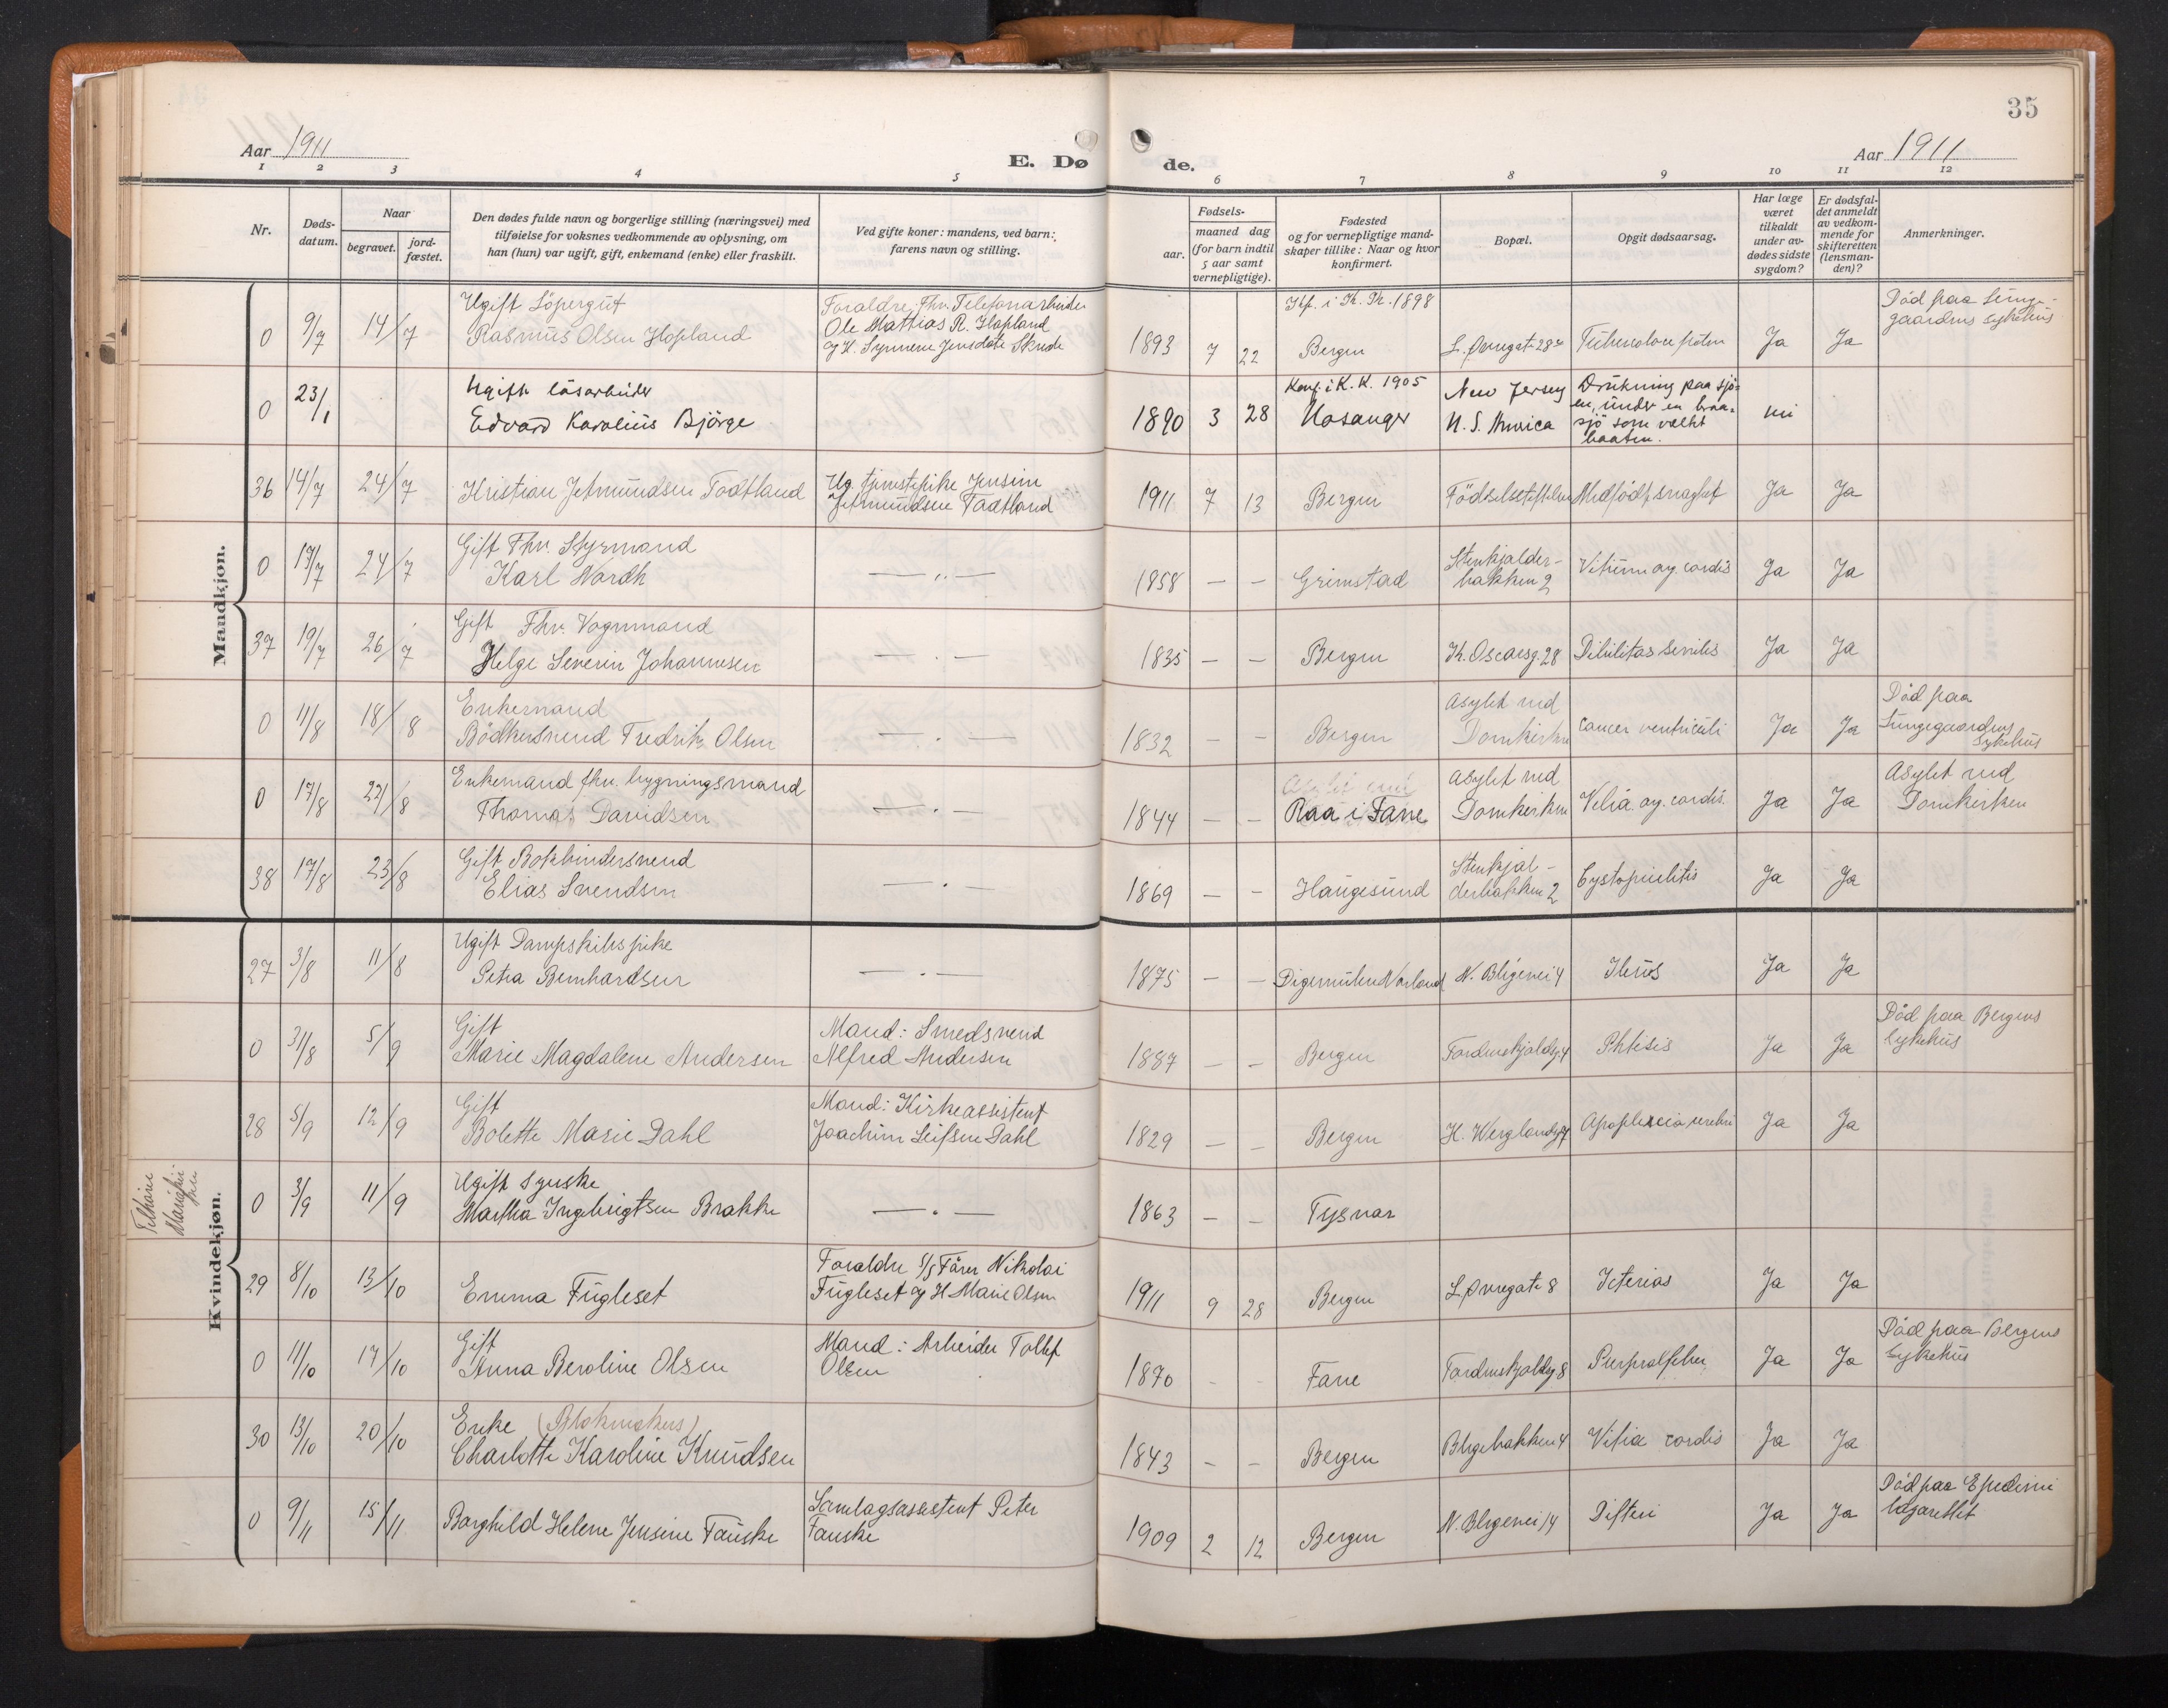 35
Aar 1911
E. Dø
de.
Aar 1911
1 2 3 4 5 6 7 8 9 10 11 12
Nr.
Døds-
datum.
Naar
begravet.
jord-
fæstet.
Den dødes fulde navn og borgerlige stilling (næringsvei) med
tilføielse for voksnes vedkommende av oplysning, om
han (hun) var ugift, gift, enkemand (enke) eller fraskilt.
Ved gifte koner: mandens, ved barn:
farens navn og stilling.
Fødsels-
aar.
maaned dag
(for barn indtil
5 aar samt
vernepligtige).
Fødested
og for vernepligtige mand-
skaper tillike: Naar og hvor
konfirmert.
Bopæl.
Opgit dødsaarsag.
Har læge
været
tilkaldt
under av-
dødes sidste
sygdom?
Er dødsfal-
det anmeldt
av vedkom-
mende for
skifteretten
(lensman-
den)?
Anmerkninger.
Mandkjøn.
0 9/7 14/7
Ugift Löpergut
Rasmus Olsen Hopland
Foraldre: Fhv. Telefonarbeider
Ole Mattias R. Hopland
og H. Synneve Jensdate Skrede
1893 7 22
Kf. i K. K. 1898
Bergen
L. Øvregate 28
Ja Ja
Död paa Lunge-
gaardens sykehus
0 23/1
Ugift lösarbeider
Edvard Karolius Björge
1890 3 28
Konf. i K. K. 1905
Hosanger
New Jersey
N. S. America
Drukning paa sjö-
en, under en braa-
sjö som vælht
baaten.
nei
36 14/7 24/7
Kristian Jetmundsen Todtland
Ug. tjenestepike Jensine
Jetmundsen Tadtland
1911 7 13
Bergen
Födselsstiftelsen
Medfödt svaghet
Ja Ja
0 17/7 24/7
Gift Fhv. Styrmand
Karl Nordh
— „ —
1858 — —
Grimstad
Stenkjelder-
bakken 2
Vitium org. cordis
Ja Ja
37 19/7 26/7
Gift Fhv. Vognmand
Helge Severin Johannesen
— . —
1835 — —
Bergen
K. Oscarsg. 28
Debilitas senilis
Ja Ja
0 11/8 18/8
Enkemand
Bödkersvend Fredrik Olsen
— . —
1832 — —
Bergen
Asylet ved
Domkirken
Cancer ventriculi
Ja Ja
Död paa
Lungegaardens
Sykehus
0 17/8 22/8
Enkemand fhv. bygningsmand
Thomas Davidsen
— . —
1844 — —
Raa i Fane
Asylet ved
Domkirken
Vitia org. cordis.
Ja Ja
Asylet ved
Domkirken
38 17/8 23/8
Gift Bokbindersvend
Elias Svendsen
— . —
1869 — —
Haugesund
Stenkjel-
derbakken 2
Cystopielitis
Ja Ja
Kvindekjøn.
27 3/8 11/8
Ugift Dampskibspike
Petra Bernhardsen
— . —
1875 — —
Digermulen Norland
N. Blegevei 4
Ileus
Ja Ja
0 31/8 5/9
Gift
Marie Magdalene Andersen
Mand: Smedsvend
Alfred Andersen
1887 — —
Bergen
Tordenskjoldsg 4
Phtisis
Ja Ja
Död paa Bergens
Sykehus
28 5/9 12/9
Gift
Bolette Marie Dahl
Mand: Kirkeassistent
Joachim Leifsen Dahl
1829 — —
Bergen
Apoplexia cerebri
Ja Ja
Tilhörer
Mariakir
ken
0 3/9 11/9
Ugift Syerske
Martha Ingebrigtsen Brakke
— . —
1863 — —
Tysvær
29 8/10 13/10
Emma Fugleset
Foraldre S/S Fører Nikolai
Fugleset og H. Marie Olsen
1911 9 28
Bergen
L. Øvregate 8
Icterus
Ja Ja
0 11/10 17/10
Gift
Anna Beroline Olsen
Mand: Arbeider Tollef
Olsen
1870 - -
Fane
Tordenskjoldsg 8
Ja Ja
Död paa Bergens
Sykehus
30 13/10 20/10
Enke (Blokmakers)
Charlotte Karoline Knudsen
1843 - -
Bergen
Blegebakken 4
Vitia cordis
Ja Ja
0 9/11 15/11
Borghild Helene Jensine Fauske
Samlagsassistent Peter
Fauske
1909 2 12
Bergen
N. Blegevei 14
Difteri
Ja Ja
Död paa Epedemi
lazarettet